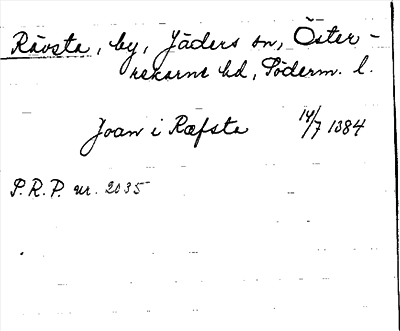 Rävsta, by, Jäders sn, Öster-
rekarne hd, Söderm. l.
Joan i Ræfsta 14/7 1384
P.R.P. nr. 2035